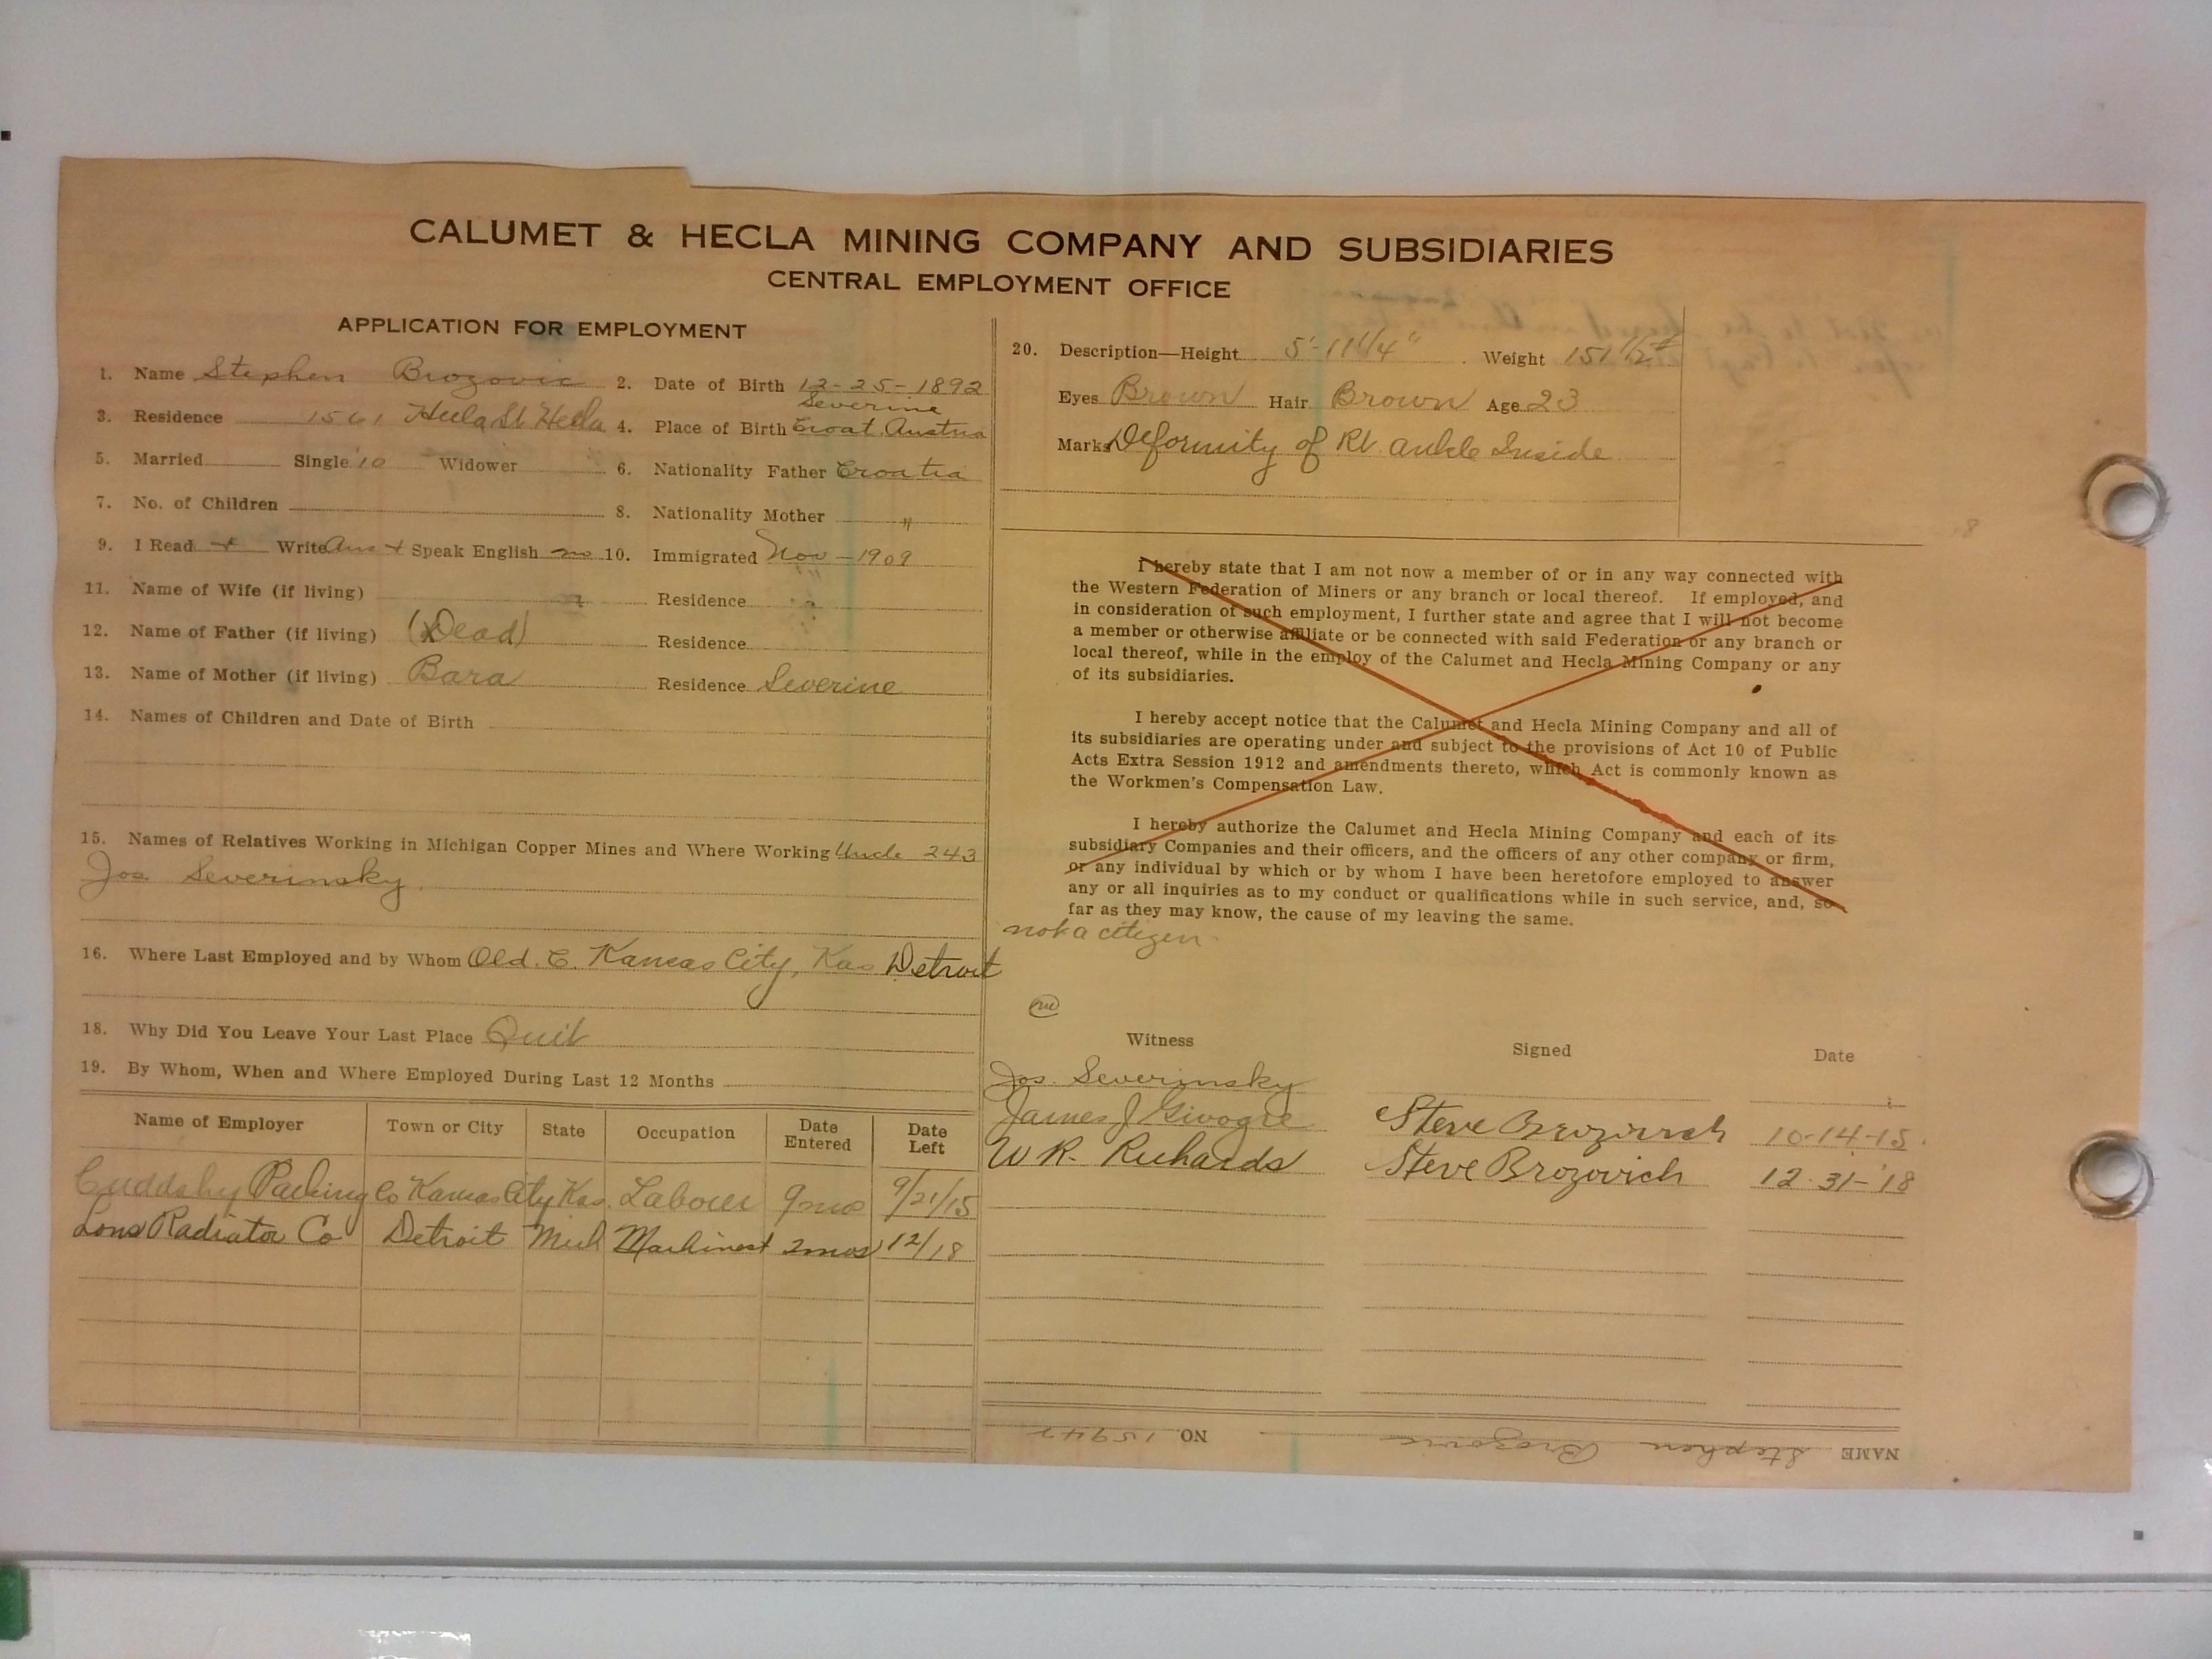 CALUMET & HECLA MINING COMPANY AND SUBSIDIARIES
CENTRAL EMPLOYMENT OFFICE
APPLICATION FOR EMPLOYMENT
1. Name Stephen Brozovic 2. Date of Birth 12-25-1892
3. Residence 1561 Hecla St Hecla 4. Place of Birth Severine Croat. Austria
5. Married Single 10 Widower 6. Nationality Father Croatia
7. No. of Children 8. Nationality Mother "
9. I Read + Write Aus + Speak English no 10. Immigrated Nov - 1909
11. Name of Wife (if living) Residence
12. Name of Father (if living) (Dead) Residence
13. Name of Mother (if living) Bara Residence Severine
14. Names of Children and Date of Birth
15. Names of Relatives Working in Michigan Copper Mines and Where Working Uncle 243
Jos Severinsky
16. Where Last Employed and by Whom Old. C. Kansas City, Kas Detroit
18. Why Did You Leave Your Last Place Quit
19. By Whom, When and Where Employed During Last 12 Months
Name of Employer Town or City State Occupation Date Entered Date Left
Cuddahy Packing Co Kansas City Kas. Laborer 9 mos 9/21/15
Long Radiator Co Detroit Mich Machinest 2 mos 12/18
20. Description—Height 5'-11 1/4" Weight 151 1/2#
Eyes Brown Hair Brown Age 23
Marks Deformity of Rt. ankle Inside
I hereby state that I am not now a member of or in any way connected with
the Western Federation of Miners or any branch or local thereof. If employed, and
in consideration of such employment, I further state and agree that I will not become
a member or otherwise affiliate or be connected with said Federation or any branch or
local thereof, while in the employ of the Calumet and Hecla Mining Company or any
of its subsidiaries.
I hereby accept notice that the Calumet and Hecla Mining Company and all of
its subsidiaries are operating under and subject to the provisions of Act 10 of Public
Acts Extra Session 1912 and amendments thereto, which Act is commonly known as
the Workmen's Compensation Law.
I hereby authorize the Calumet and Hecla Mining Company and each of its
subsidiary Companies and their officers, and the officers of any other company or firm,
or any individual by which or by whom I have been heretofore employed to answer
any or all inquiries as to my conduct or qualifications while in such service, and, so
far as they may know, the cause of my leaving the same.
not a citizen
Witness Signed Date
Jos. Severinsky
James J Givogre Steve Brozovich 10-14-15.
W R. Richards Steve Brozovich 12-31-'18
NAME Stephen Brozovic NO. 15947